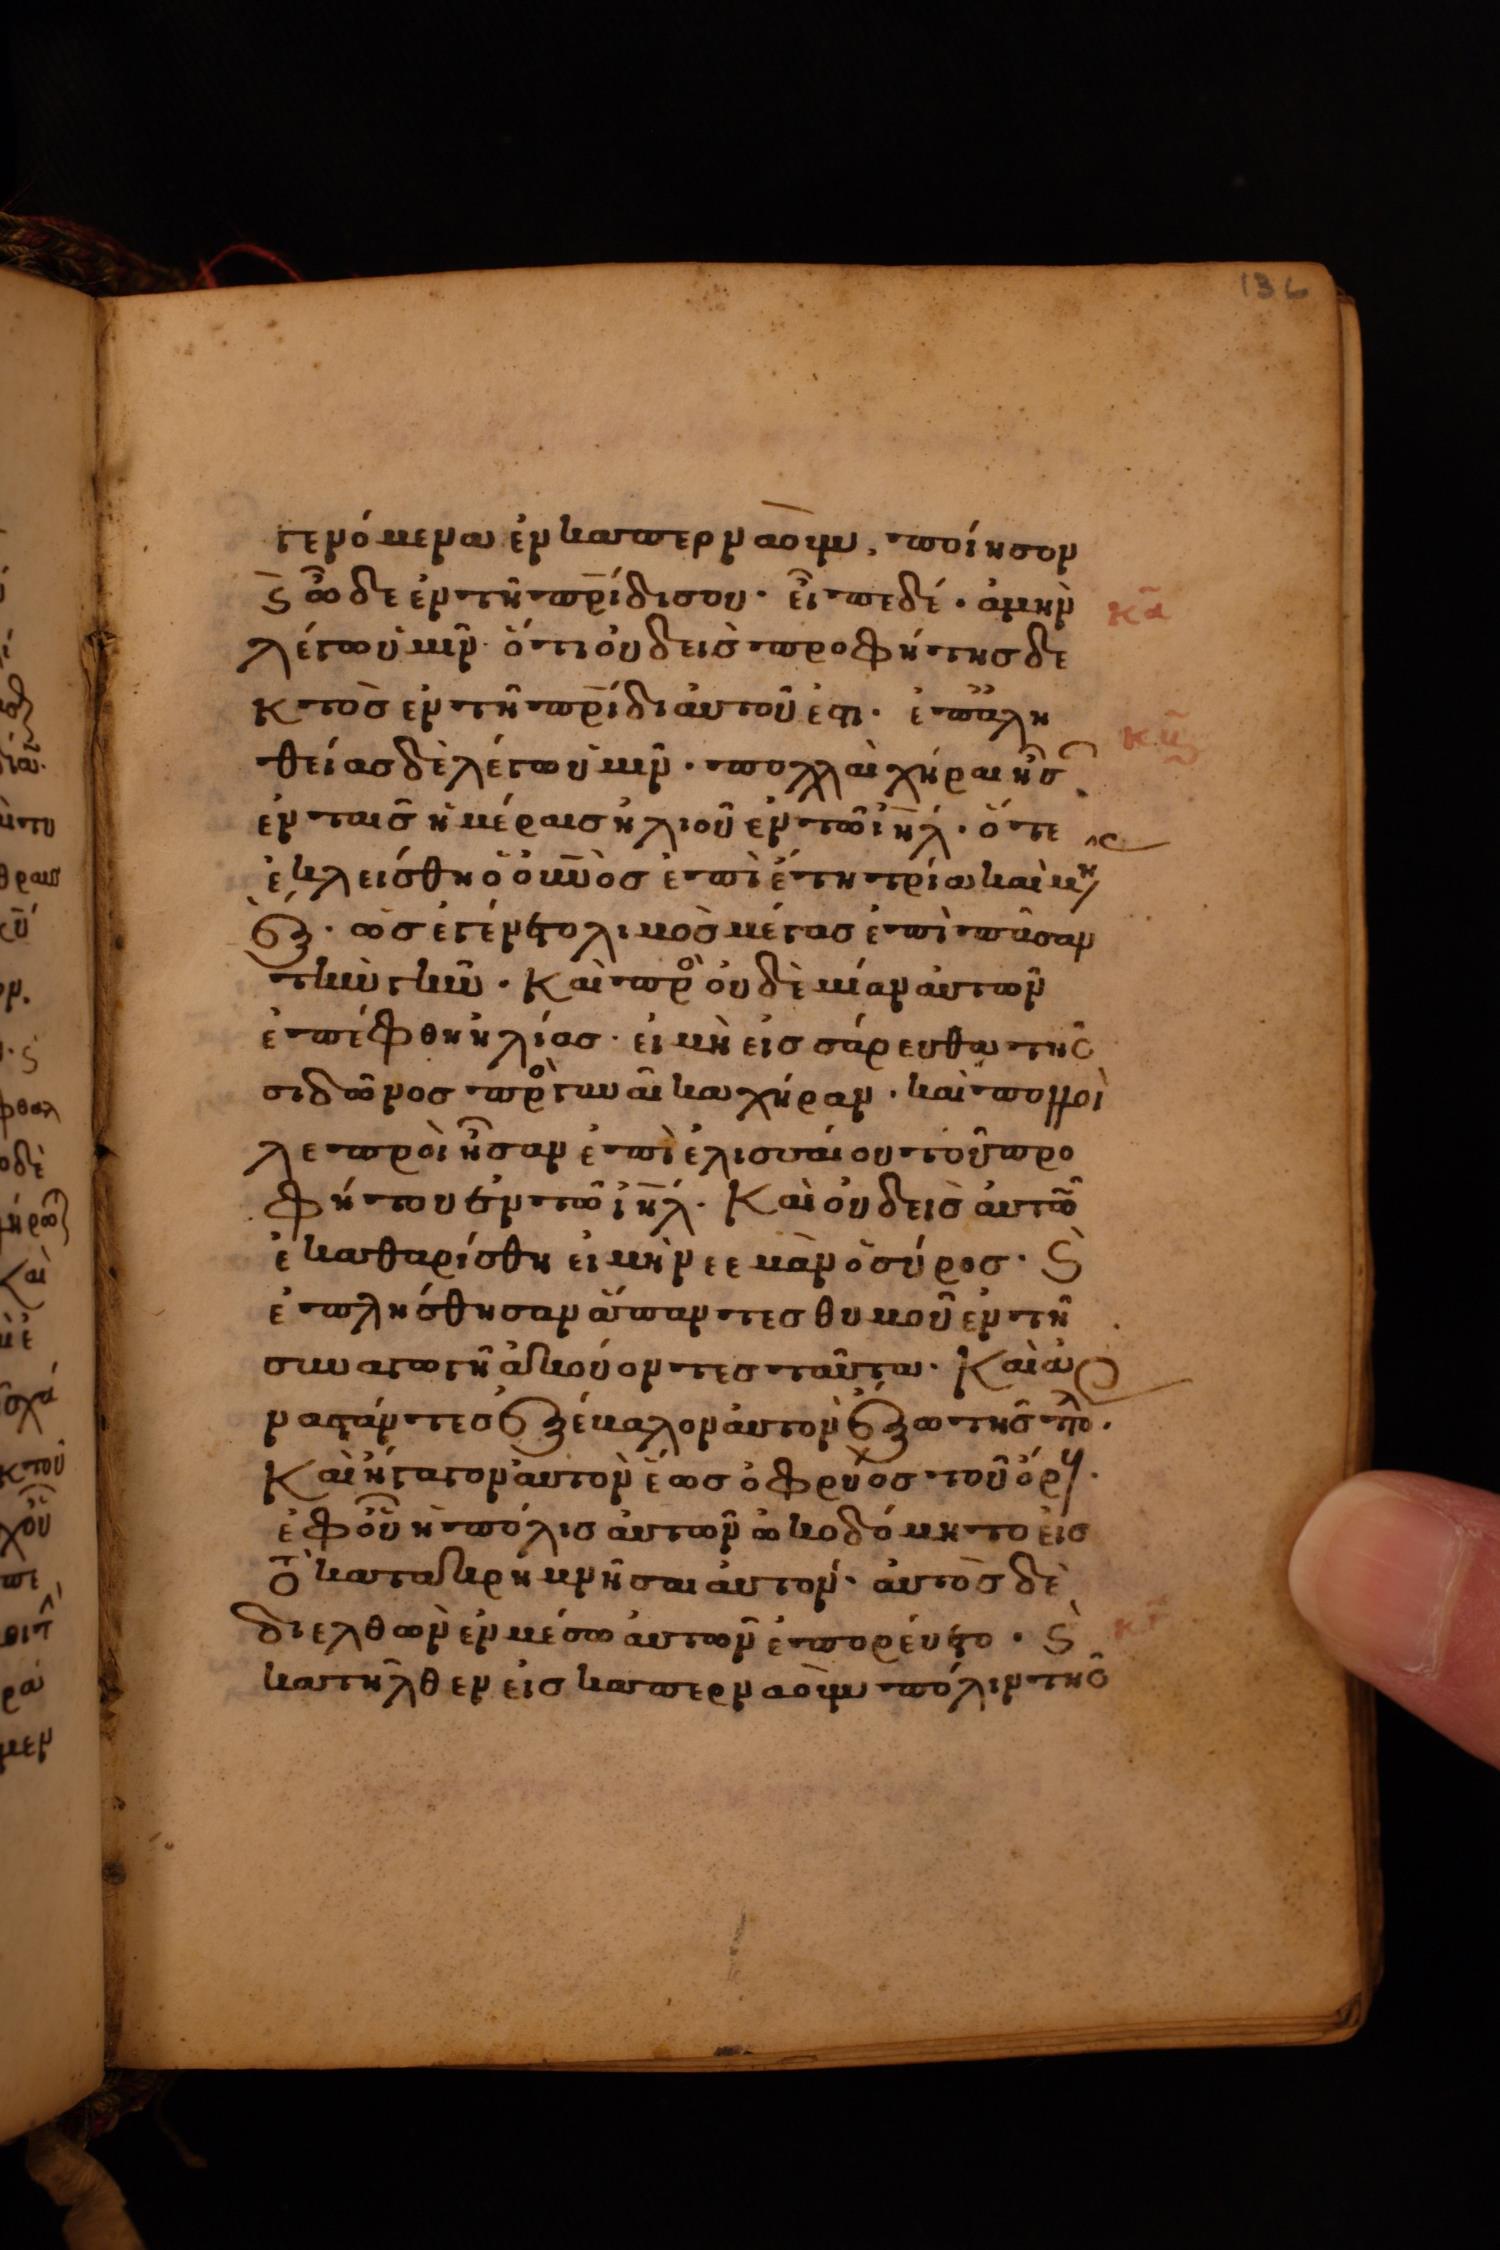 136
γενόμενα ἐν καπερναούμ, ποίησον
ϛ ὧδε ἐν τῆ πρ̅ίδι σου· εἶπε δέ· ἀμὴν κα
λέγω ὑμῖν· ὅτι οὐδεὶς προφήτης δε
κτὸς ἐν τῆ πρ̅ίδι αὐτοῦ ἐστι· ἐπ ἀλη
θείας δὲ λέγω ὑμῖν· πολλαὶ χῆραι ἦσ
ἐν ταῖς ἡμέραις ἠλιοῦ ἐν τῶ ἰη̅λ· ὅτε
ἐκλείσθη ὁ οὐν̅ὸς ἐπὶ ἔτη τρία καὶ μη
ἓξ· ὡς ἐγένετο λιμὸς μέγας ἐπὶ πᾶσαν
τὴν γῆν· Καὶ πρὸ οὐδὲ μίαν αὐτῶν
ἐπέφθη ἠλίας· εἰ μὴ εἰς σάρευθα τῆς
σιδῶνος πρὸ γυναῖκα χήραν· καὶ πολλοὶ
λεπροὶ ἦσαν ἐπὶ ἐλισσαίου τοῦ προ
φήτου ἐν τῶ ἰη̅λ· Καὶ οὐδεὶς αὐτῶ
ἐκαθαρίσθη εἰ μὴ νεεμὰν ὁ σύρος· ϛ
ἐπλήσθησαν ἅπαντες θυμοῦ ἐν τῆ
συναγωγῆ ἀκούοντες ταῦτα· Καὶ ἀ
ναστάντες ἐξέβαλον αὐτὸν ἔξω τῆς πο·
Καὶ ἤγαγον αὐτὸν ἕως ὀφρύος τοῦ ὄρου·
ἐφ οὗ ἡ πόλις αὐτῶν ὠκοδόμητο εἰς
τὸ κατακρημνῆσαι αὐτόν· αὐτὸς δὲ
διελθὼν ἐν μέσω αὐτῶν ἐπορεύετο· ϛ
κατῆλθεν εἰς καπερναοὺμ πόλιν τῆς